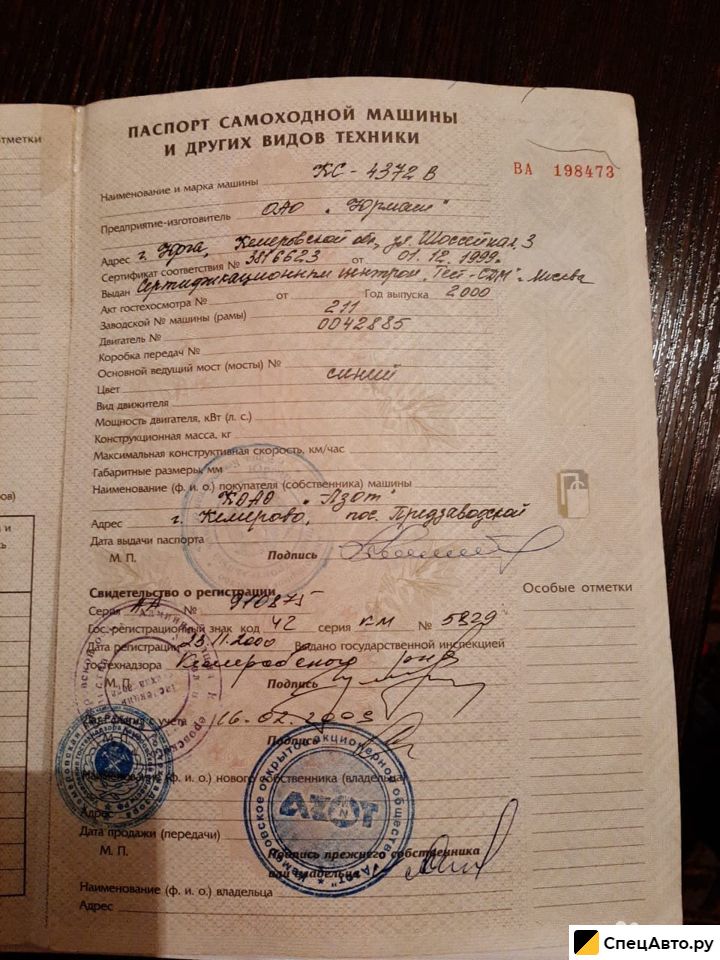 ПАСПОРТ САМОХОДНОЙ МАШИНЫ
И ДРУГИХ ВИДОВ ТЕХНИКИ
ВА 198473
Наименование и марка машины КС-4372В
Предприятие-изготовитель ОАО "Юрмаш"
Адрес г. Юрга, Кемеровской обл, ул. Шоссейная, 3
Сертификат соответствия № 3816623 от 01.12.1999г.
Выдан Сертификационным центром "Тест-СДМ" Москва
Акт гостехосмотра № от Год выпуска 2000
Заводской № машины (рамы) 211
Двигатель № 0042885
Коробка передач №
Основной ведущий мост (мосты) №
Цвет синий
Вид движителя
Мощность двигателя, кВт (л. с.)
Конструкционная масса, кг
Максимальная конструктивная скорость, км/час
Габаритные размеры, мм
Наименование (ф. и. о.) покупателя (собственника) машины
КОАО "Азот"
Адрес г. Кемерово, пос. Предзаводской
Дата выдачи паспорта
М. П. Подпись
Свидетельство о регистрации
Особые отметки
Серия АА № 910875
Гос. регистрационный знак код 42 серия КМ № 5829
Дата регистрации 23.11.2000 Выдано государственной инспекцией
Гостехнадзора
М. П. Подпись
с учета 16.02.2009
Подпись
Наименование (ф. и. о.) нового собственника (владельца)
Адрес
Дата продажи (передачи)
М. П. Подпись прежнего собственника
или владельца
Наименование (ф. и. о.) владельца
Адрес
АЗОТ
тметки
ов)
и
ь
СпецАвто.ру